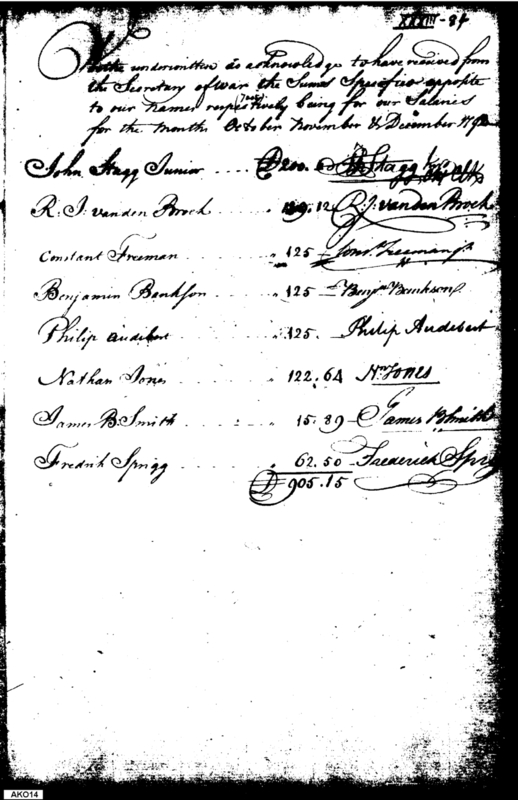 XXXIII - 84
We the underwritten do acknowledge to have received from
the Secretary of war the Sums Specified opposite
to our Names respectively being for our Salaries
for the months October November & December
John Stagg Junior .... D 200. Stagg
R. J. vanden Broek .... .12 R. J. vanden Broek
Constant Freeman .... " 125 Freeman
Benjamin Bankson .... " 125 Benjn Bankson
Philip Audebert .... " 125. Philip Audebert
Nathan Jones .... 122.64 Nn Jones
James B. Smith .... " 15.89 James B Smith
Fredrik Sprigg .... " 62.50 Frederick Sprig
D 905.15
AKO14